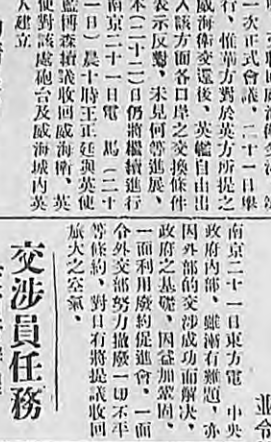 收回威海衛交涉
一次正式會議、二十一日舉
行、惟華方對於英方所提之
威海衛交還後、英艦自由出
入該方面各口岸之交換條件
表示反對、未見何等進展、
本(二十二)日仍將繼續進行
南京二十一日電 馬(二十
一日)晨十時王正廷與英使
藍博森續議收回威海衛、英
使對該處砲台及威海城內英
人建立
並令
南京二十一日東方電 中央
政府內部、雖漸有難題、亦
因外部的交涉成功而解決、
政府之基礎、因益加鞏固、
一面利用廢約促進會、一面
令外交部努力撤廢一切不平
等條約、對日有將提議收回
旅大之空氣、
交涉員任務